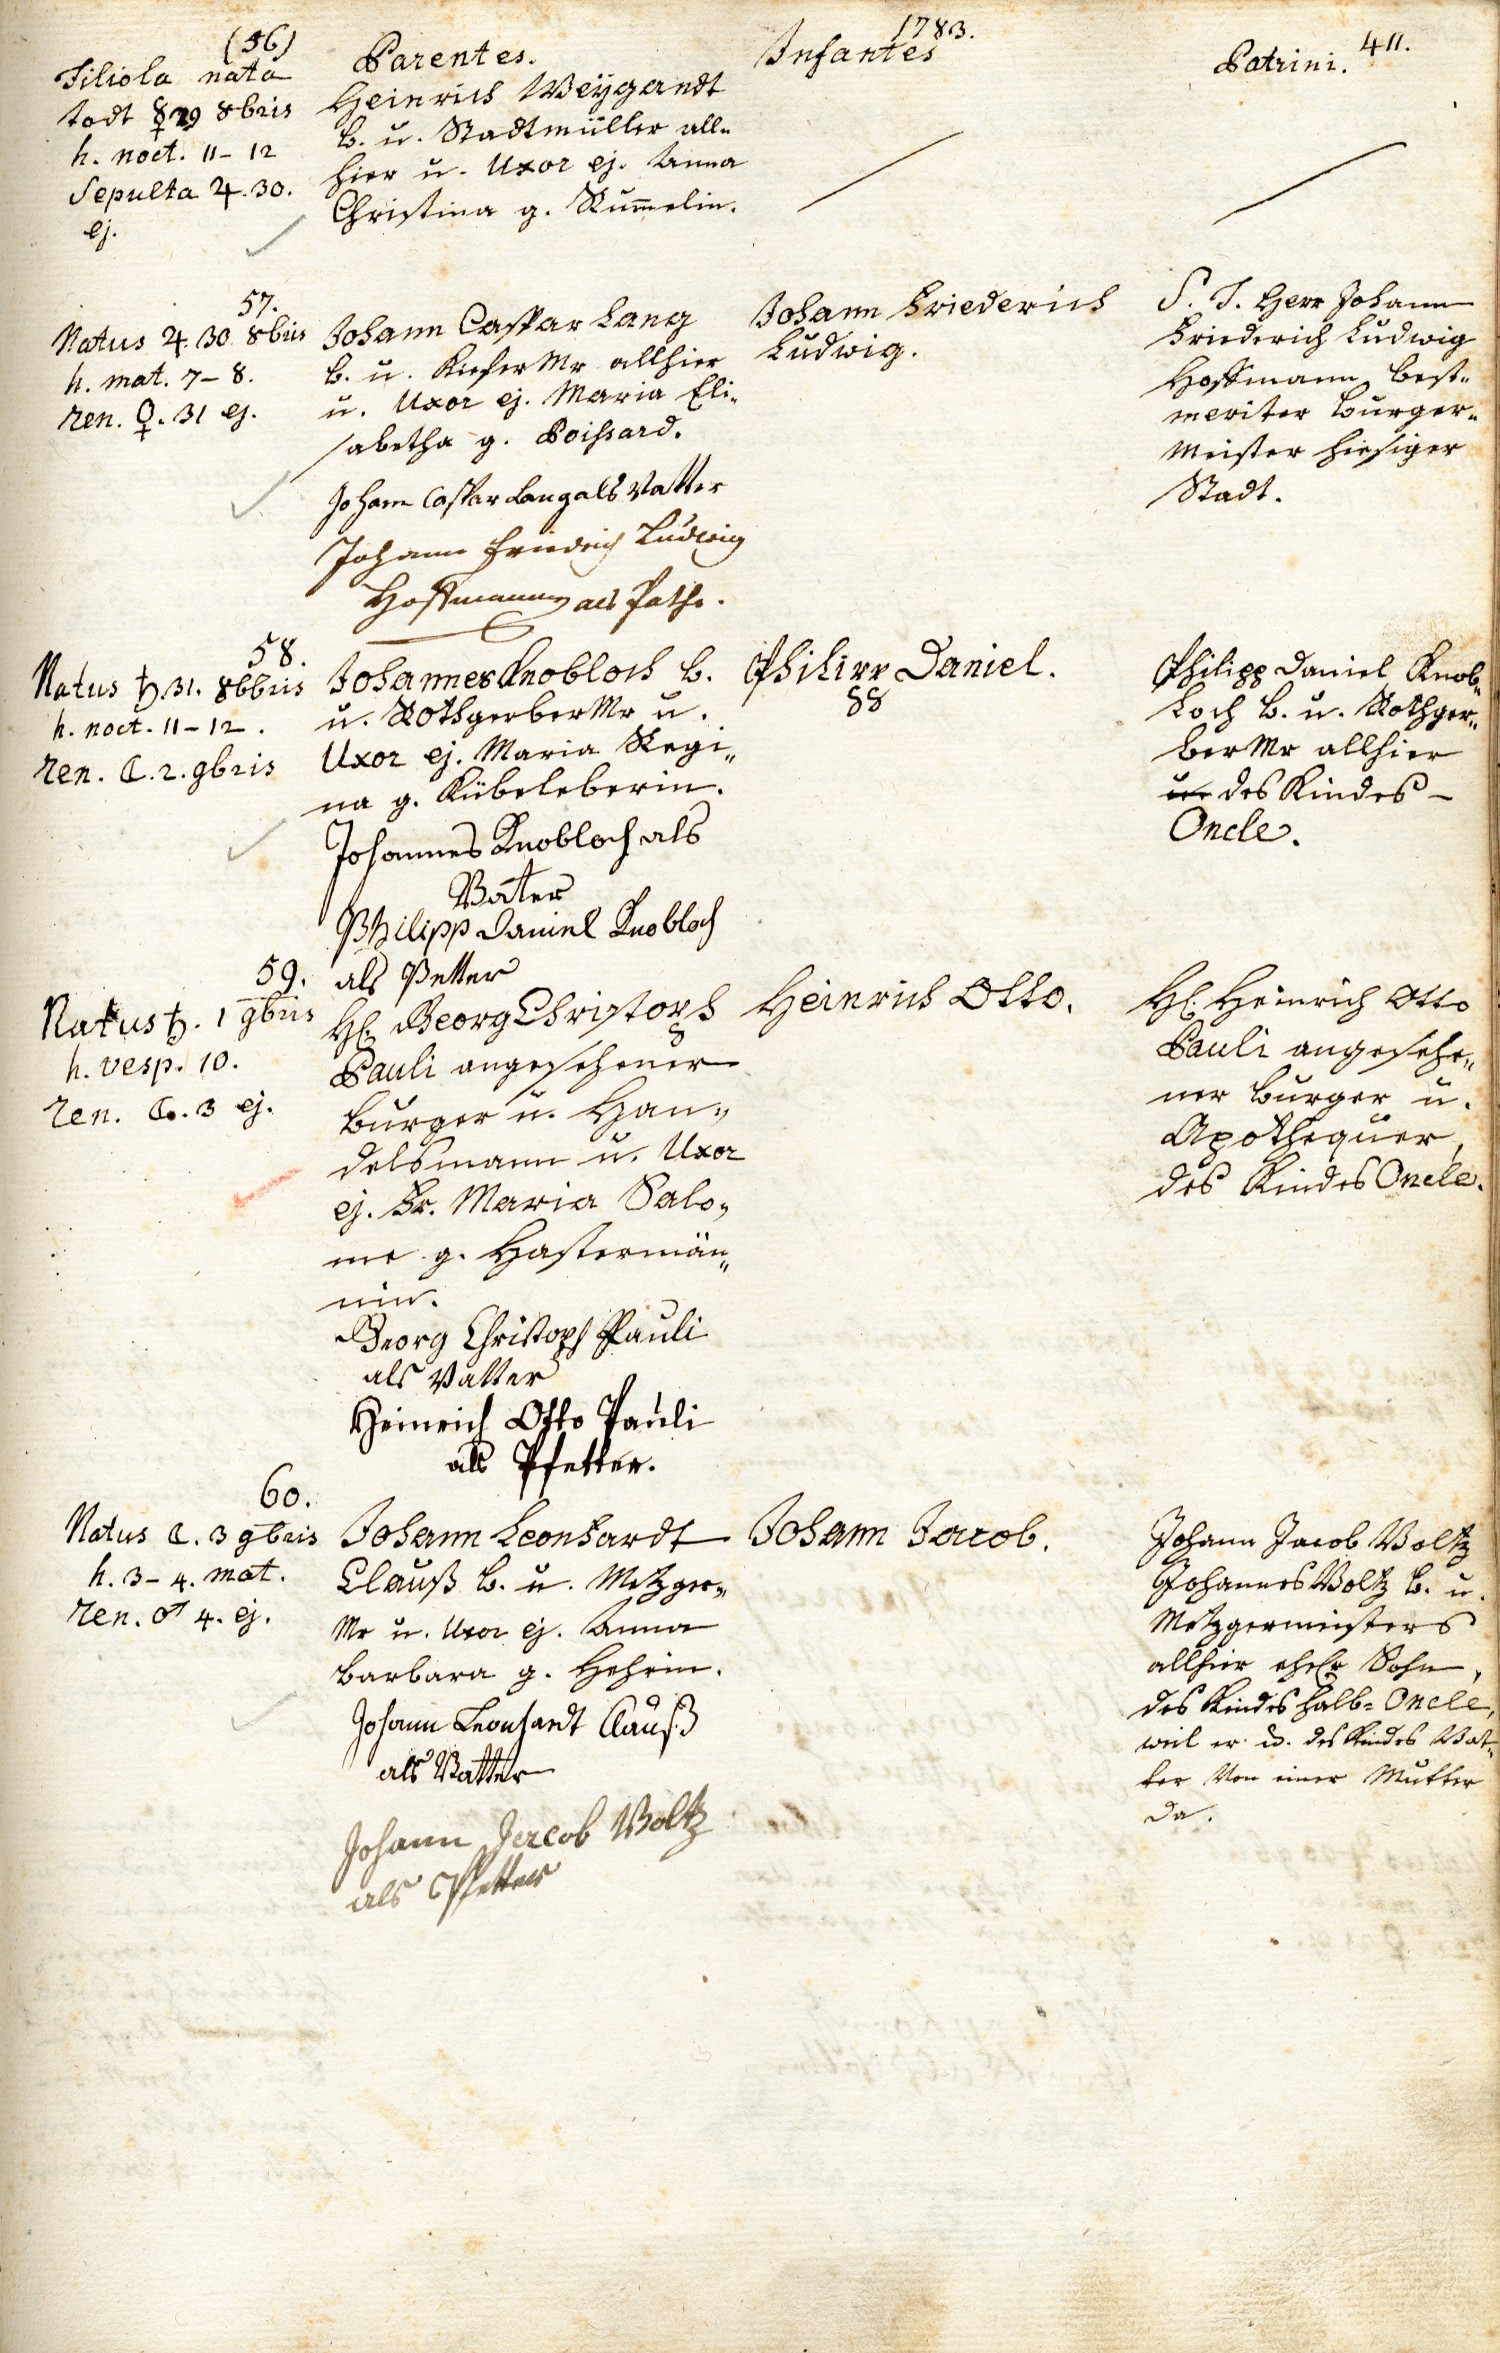 1783.
411.
Parentes.
Infantes
Patrini.
(56)
Filiola nata
todt ☿ 29 8bris
h. noct. 11-12
Sepulta ♃. 30.
ej.
Heinrich Weÿgandt
b. u. Stadtmüller all=
hier u. Uxor ej. Anna
Christina g. Kum̅elin.
57.
Natus ♃. 30. 8bris
h. mat. 7-8.
ren. ♀. 31 ej.
Johann Caspar Lang
b. u. Kiefer Mr allhier
u. Uxor ej. Maria Eli=
sabetha g. Boissard.
Johann Caspar Lang als Vatter
Johann Friedrich Ludwig
Hoffmann als Pathe.
Johann Friederich
Ludwig.
S. T. Herr Johann
Friederich Ludwig
Hoffmann best=
meriter Burger=
Meister hiesiger
Stadt.
58.
Natus ♄. 31. 8bbris
h. noct. 11-12.
ren. ☾. 2. 9bris
Johannes Knobloch b.
u. Rothgerber Mr u.
Uxor ej. Maria Regi=
na g. Kübeleberin.
Johannes Knobloch als
Vater
Philipp Daniel Knobloch
als Petter
Philipp Daniel.
Philipp Daniel Knob=
loch b. u. Rothger=
ber Mr allhier
des Kindes
Oncle.
59.
Natus ♄. 1 9bris
h. vesp. 10.
ren. ☾. 3 ej.
H. Georg Christoph
Pauli angesehener
Burger u. Han=
delsmann u. Uxor
ej. Fr. Maria Salo=
me g. Hastermän=
nin.
Georg Christoph Pauli
als Vatter
Heinrich Otto Pauli
als Pfetter.
Heinrich Otto.
H. Heinrich Otto
Pauli angesehe=
ner Burger u.
Apothequer,
des Kindes Oncle.
60.
Natus ☾. 3 9bris
h. 3-4. mat.
ren. ♂ 4. ej.
Johann Leonhardt
Clauß b. u. Metzger=
Mr u. Uxor ej. Anna
Barbara g. Hehrin.
Johann Leonhardt Clauß
als Vatter
Johann Jacob Voltz
als Pfetter
Johann Jacob.
Johann Jacob Voltz
Johannes Voltz b. u.
Metzgermeisters
allhier ehel. Sohn,
des Kindes halb=Oncle,
weil er u. des Kindes Vat=
ter von einer Mutter
da.